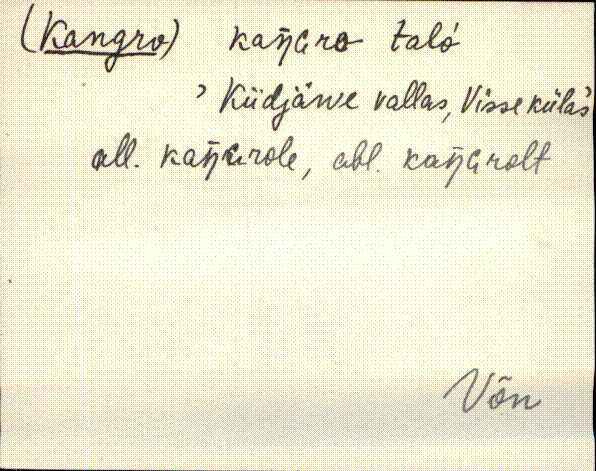 (Kangro) kaŋɢro talo̭
' Kiidjärve vallas, Visse külas'
all. kaŋɢrole, abl. kaŋɢrolt
Võn